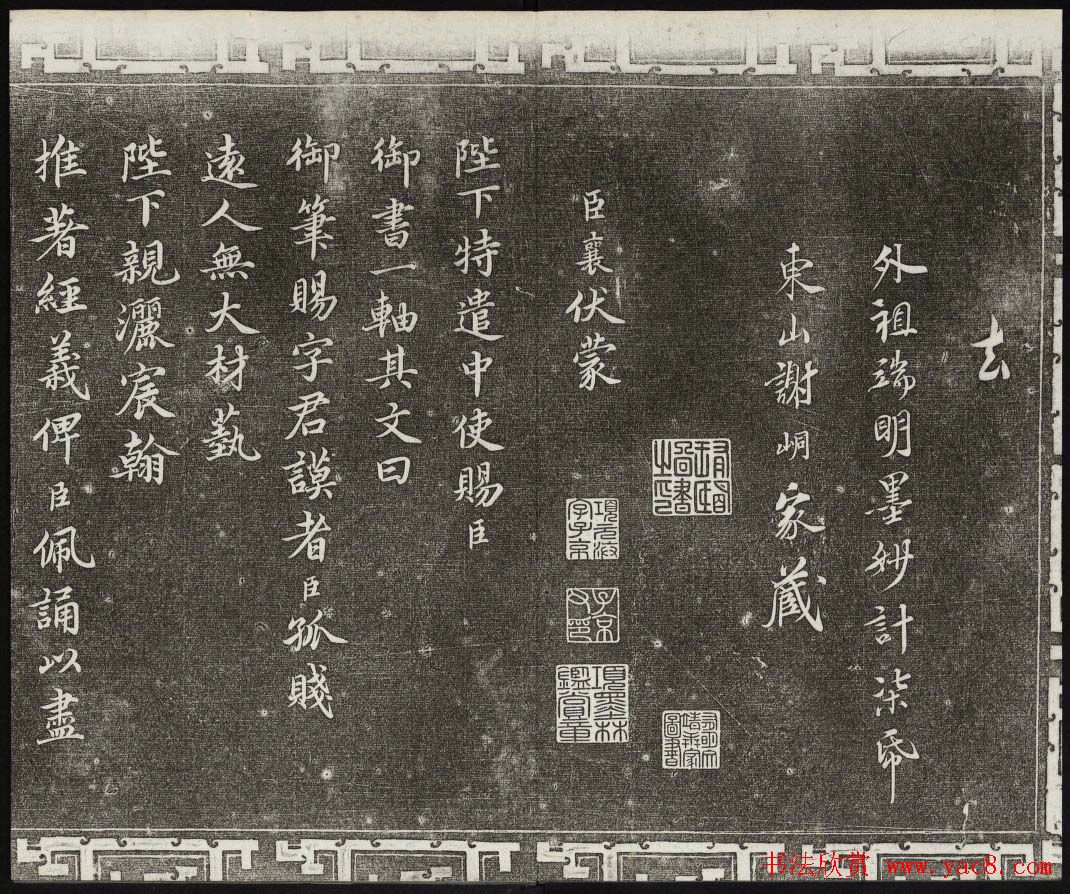 去
外祖端明墨妙計柒帋
東山謝峒家藏
臣襄伏蒙
陛下特遣中使賜臣
御書一軸其文曰
御筆賜字君謨者臣孤賤
遠人無大材藝
陛下親灑宸翰
推著經義俾臣佩誦以盡
項元汴
字子京
子京
父印
項墨林
鑑賞章
书法欣赏 www.yac8.com